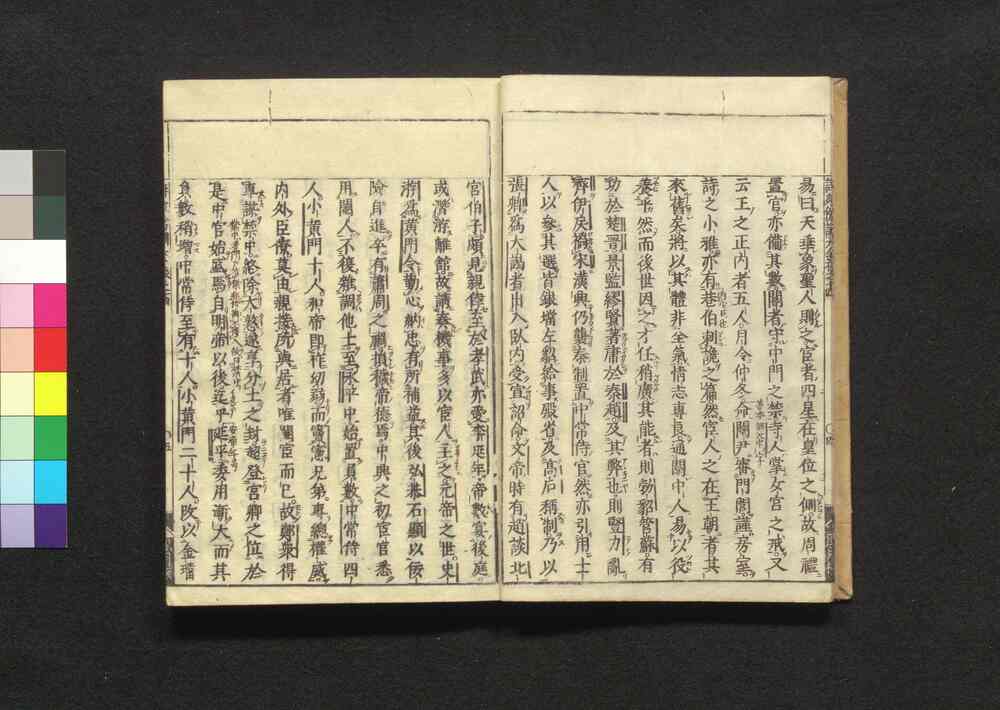 易曰天垂象聖人則之宦者四星在皇位之側故周禮
置官亦備其數閽者守中門之禁寺人掌女宮之戒又
云王之正內者五人月令仲冬命閹尹審門閭謹房室
詩之小雅亦有巷伯刺讒之篇然宦人之在王朝者其
來舊矣將以其體非全氣情志專良通關中人易以役
養乎然而後世因之才任稍廣其能者則勃貂管蘇有
功於楚晉景監繆賢著庸於秦趙及其弊也則豎刁亂
齊伊戾禍宋漢興仍襲秦制置中常侍官然亦引用士
人以參其選皆銀璫左貂給事殿省及高后稱制乃以
張卿為大謁者出入臥內受宣詔命文帝時有趙談北
宮伯子頗見親倖至於孝武亦愛李延年帝數宴後庭
或潛游離館故請奏機事多以宦人主之元帝之世史
游為黃門令勤心納忠有所補益其後弘恭石顯以佞
險自進卒有蕭周之禍損穢帝德焉中興之初宦官悉
用閹人不復雜調他士至永平中始置員數中常侍四
人小黃門十人和帝即祚幼弱而竇憲兄弟專總權威
內外臣僚莫由親接所與居者唯閹宦而已故鄭眾得
專謀禁中終除大憝遂享分土之封超登宮卿之位於
是中官始盛焉自明帝以後迄乎延平委用漸大而其
員數稍增中常侍至有十人小黃門二十人改以金璫